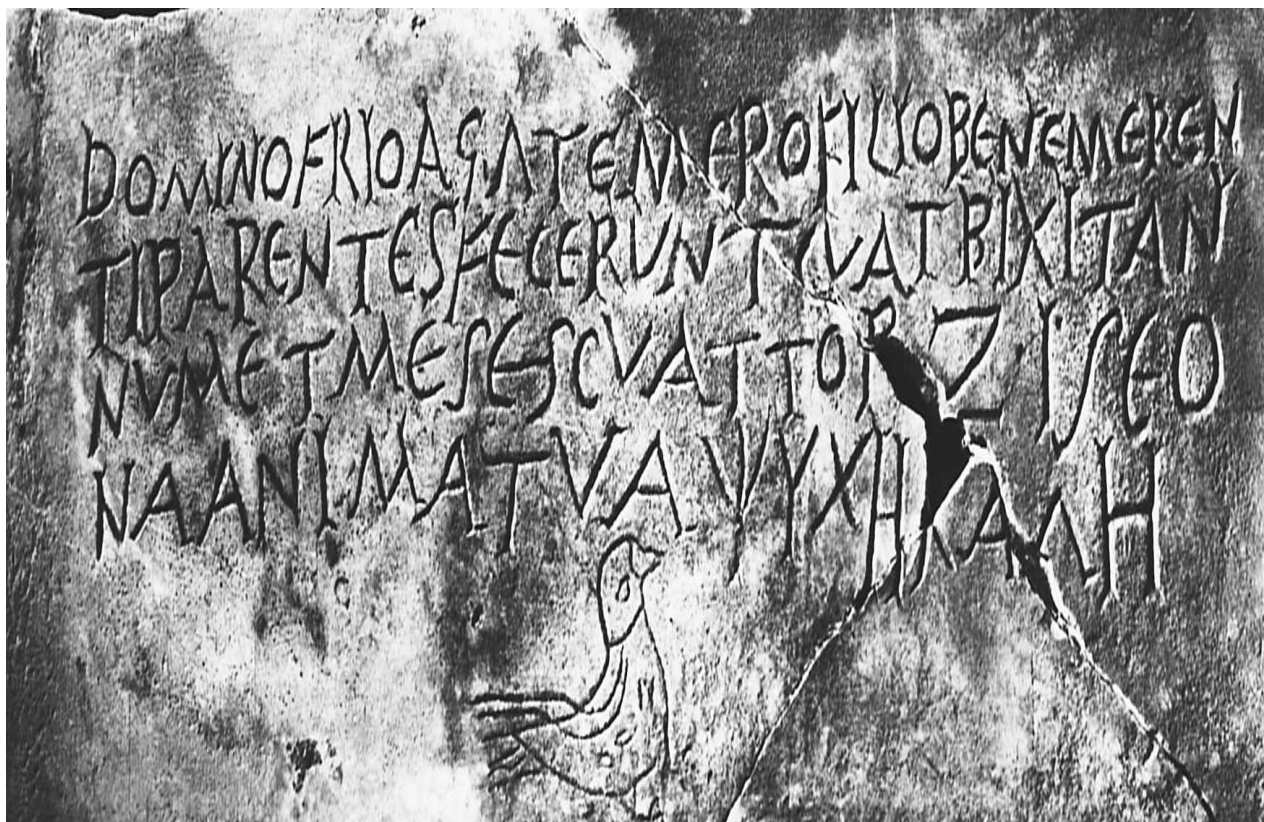 DOMINOFRIOAGATEMEROFILIOBENEMEREN
TIPARENTESFECERVNTCVATBIXITAN
NVMETMESESCVATTORZISEO
NAANIMATVAΨΥΧΗΚΑΛΗ